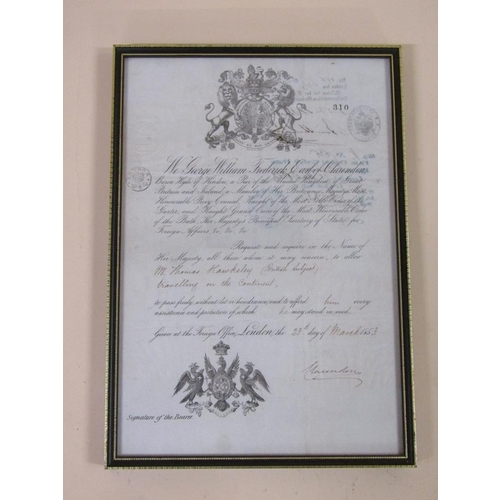 310
We George William Frederick, Earl of Clarendon,
Baron Hyde of Hindon, a Peer of the United Kingdom of Great
Britain and Ireland, a Member of Her Britannic Majesty's Most
Honourable Privy Council, Knight of the Most Noble Order of the
Garter, and Knight Grand Cross of the Most Honourable Order
of the Bath, Her Majesty's Principal Secretary of State for
Foreign Affairs &c. &c. &c.
Request and require in the Name of
Her Majesty, all those whom it may concern, to allow
Mr. Thomas Hawksley (British Subject)
travelling on the Continent,
to pass freely without let or hindrance, and to afford him every
assistance and protection of which he may stand in need.
Given at the Foreign Office, London, the 23d day of March 1853
Clarendon
Signature of the Bearer